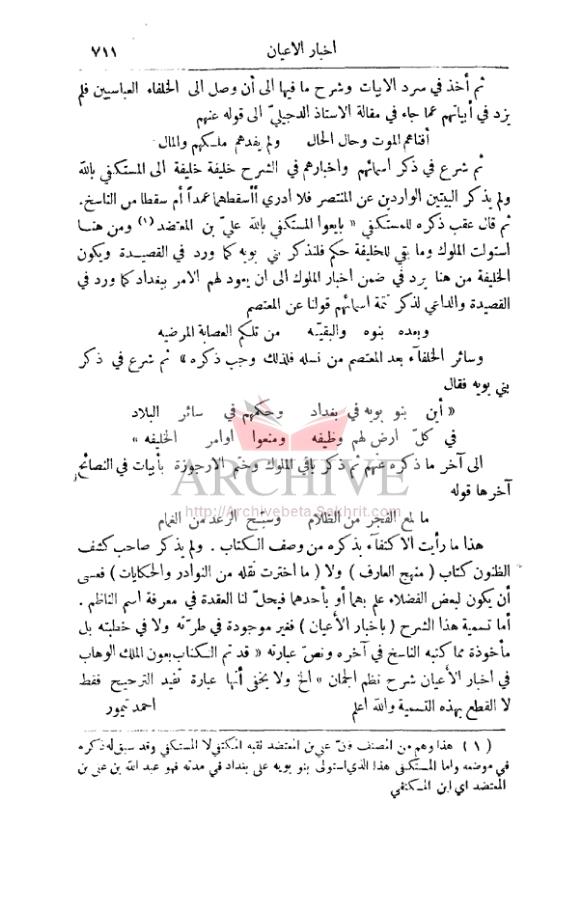 اخبار الاعيان ٧١١
ثم أخذ في سرد الابيات وشرح ما فيها الى أن وصل الى الخلفاء العباسيين فلم
يزد في أبياتهم عما جاء في مقالة الاستاذ الدجيلي الى قوله عنهم
أفناهم الموت وحال الحال ولم يفدهم ملكهم والمال
ثم شرع في ذكر اسمائهم واخبارهم في الشرح خليفة خليفة الى المستكفي بالله
ولم يذكر البيتين الواردين عن المنتصر فلا ادري أأسقطهما عمداً أم سقطا من الناسخ.
ثم قال عقب ذكره للمستكفي « بايعوا المستكفي بالله عليّ بن المعتضد (١) ومن هنا
استولت الملوك وما بقي للخليفة حكم فلنذكر بني بويه كما ورد في القصيدة ويكون
الخليفة من هنا يرد في ضمن اخبار الملوك الى ان يعود لهم الامر ببغداد كما ورد في
القصيدة والداعي لذكر تتمة اسمائهم قولنا عن المعتصم
وبعده بنوه والبقيّه من تلكم العصابة المرضيه
وسائر الخلفآء بعد المعتصم من نسله فلذلك وجب ذكره » ثم شرع في ذكر
بني بويه فقال
« أين بنو بويه في بغداد وحكمهم في سائر البلاد
في كلّ ارض لهم وظيفه ومنعوا اوامر الخليفه »
الى آخر ما ذكره عنهم ثم ذكر باقي الملوك وختم الارجوزة بأبيات في النصائح
آخرها قوله
ما لمع الفجر من الظلام وسبّح الرعد من الغمام
ARCHIVE
http://Archivebeta.Sakhrit.com
هذا ما رأيت الاكتفآء بذكره من وصف الكتاب . ولم يذكر صاحب كشف
الظنون كتاب ( منهج العارف ) ولا ( ما اخترت نقله من النوادر والحكايات ) فعسى
أن يكون لبعض الفضلاء علم بهما أو بأحدهما فيحلّ لنا العقدة في معرفة اسم الناظم .
أما تسمية هذا الشرح ( باخبار الأعيان ) فغير موجودة في طرّته ولا في خطبته بل
مأخوذة مما كتبه الناسخ في آخره ونصّ عبارته « قد تم الكتاب بعون الملك الوهاب
في اخبار الأعيان شرح نظم الجمان » الخ ولا يخفى أنها عبارة تفيد الترجيح فقط
لا القطع بهذه التسمية والله أعلم احمد تيمور
( ١ ) هذا وهم من المصنف فإنّ علي بن المعتضد لقبه المكتفي لا المستكفي وقد سبق له ذكره
في موضعه واما المستكفي هذا الذي استولى بنو بويه على بغداد في مدته فهو عبد الله بن علي بن
المعتضد اي ابن المكتفي